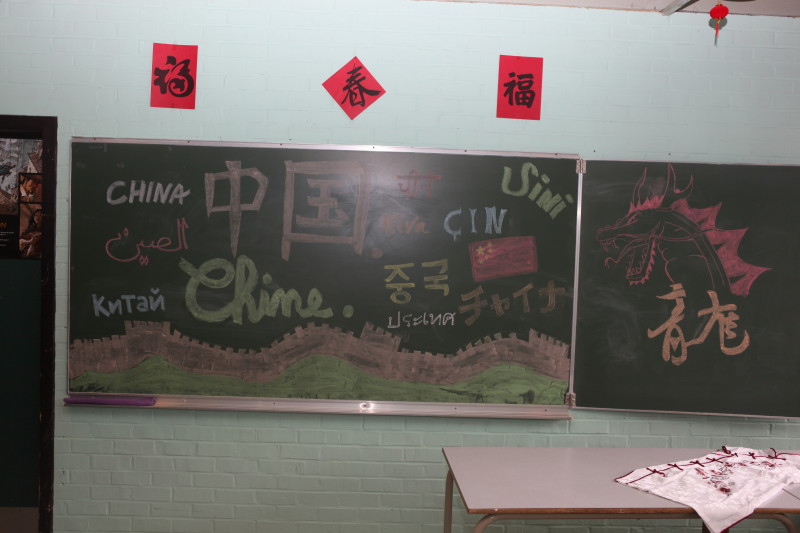 福
春
福
CHINA
中国
चीन
Sini
الصين
ÇIN
Китай
Chine.
중국
ประเทศ
チャイナ
龍